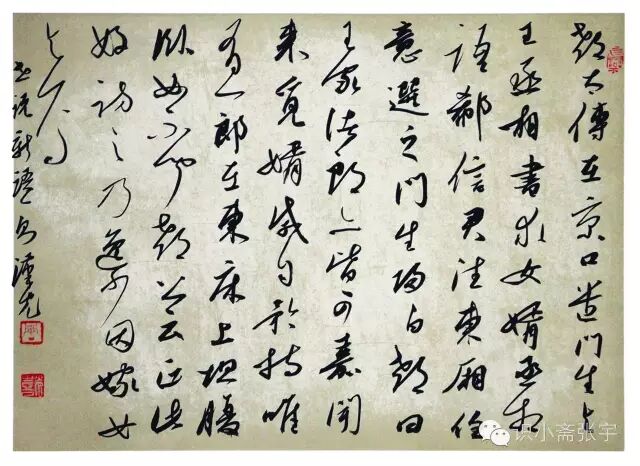 郗太傅在京口遣门生与
王丞相書求女婿丞相
語郗信君往東厢任
意選之门生归白郗曰
王家诸郎亦皆可嘉聞
来覓婿咸自矜持唯
有一郎在東床上坦腹
卧如不聞郗公云正此
好访之乃逸少因嫁女
与焉
世说新語句
识小斋张宇